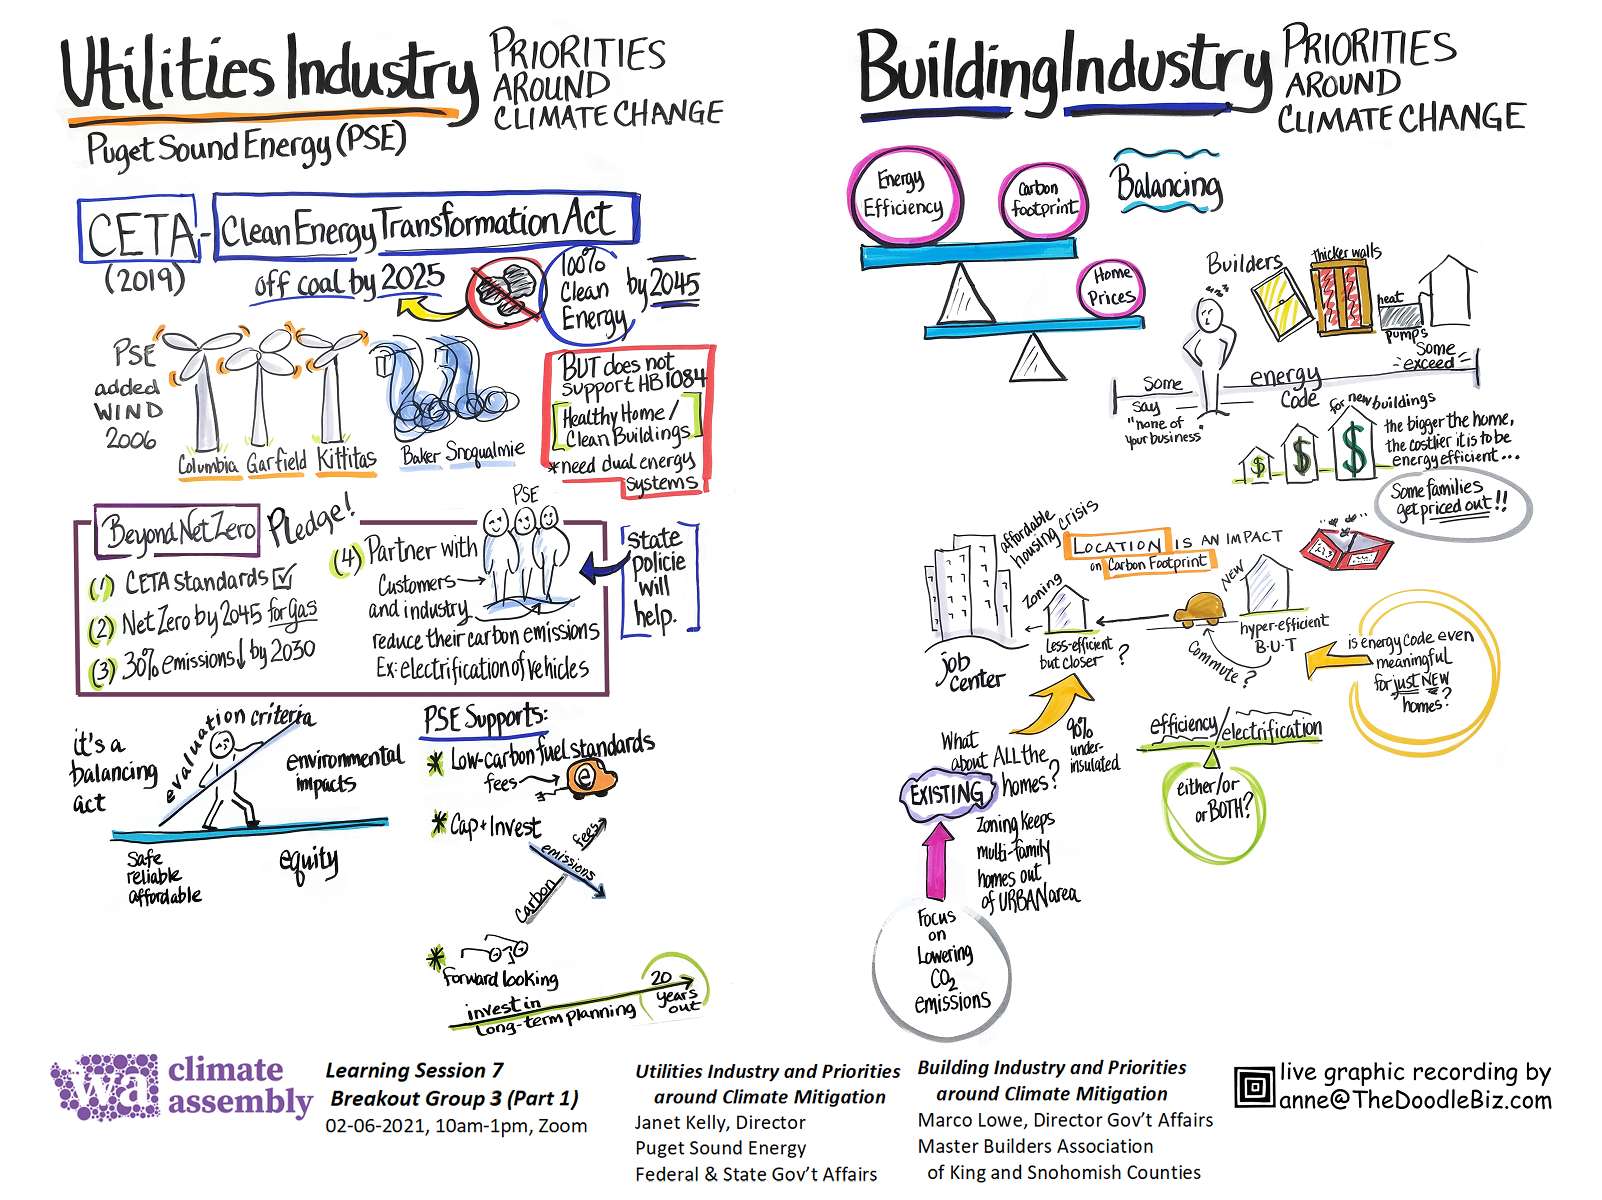 Utilities Industry
PRIORITIES
AROUND
CLIMATE CHANGE
Puget Sound Energy (PSE)
CETA - Clean Energy Transformation Act
(2019)
off coal by 2025
100%
Clean
Energy
by 2045
PSE
added
WIND
2006
Columbia Garfield Kittitas
Baker Snoqualmie
BUT does not
support HB 1084
[Healthy Home /
Clean Buildings]
*need dual energy
systems
Beyond Net Zero Pledge!
(1) CETA standards
(2) Net Zero by 2045 for gas
(3) 30% emissions↓ by 2030
PSE
(4) Partner with
Customers
and industry
reduce their carbon emissions
Ex: electrification of vehicles
state
policie
will
help.
it's a
balancing
act
evaluation criteria
environmental
impacts
Safe
reliable
affordable
equity
PSE Supports:
* Low-carbon fuel standards
fees
e
* Cap + Invest
fees
emissions
Carbon
*
forward looking
invest in
long-term planning
20
years
out
Building Industry
PRIORITIES
AROUND
CLIMATE CHANGE
Energy
Efficiency
Carbon
footprint
Balancing
Home
Prices
Builders
thicker walls
heat
pumps
Some
say
"none of
your business"
energy
Code
Some
exceed
for new buildings
$ $ $
the bigger the home,
the costlier it is to be
energy efficient...
Some families
get priced out!!
affordable
housing crisis
LOCATION IS AN IMPACT
on Carbon Footprint
Zoning
NEW
job
center
Less-efficient
but closer ?
Commute?
hyper-efficient
B·U·T
is energy code even
meaningful
for just NEW
homes?
90%
under-
insulated
What
about ALL the
EXISTING homes?
efficiency/electrification
either/or
or BOTH?
Zoning keeps
multi-family
homes out
of URBAN area
Focus
on
Lowering
CO2
emissions
wa
climate
assembly
Learning Session 7
Breakout Group 3 (Part 1)
02-06-2021, 10am-1pm, Zoom
Utilities Industry and Priorities
around Climate Mitigation
Janet Kelly, Director
Puget Sound Energy
Federal & State Gov't Affairs
Building Industry and Priorities
around Climate Mitigation
Marco Lowe, Director Gov't Affairs
Master Builders Association
of King and Snohomish Counties
live graphic recording by
anne@TheDoodleBiz.com